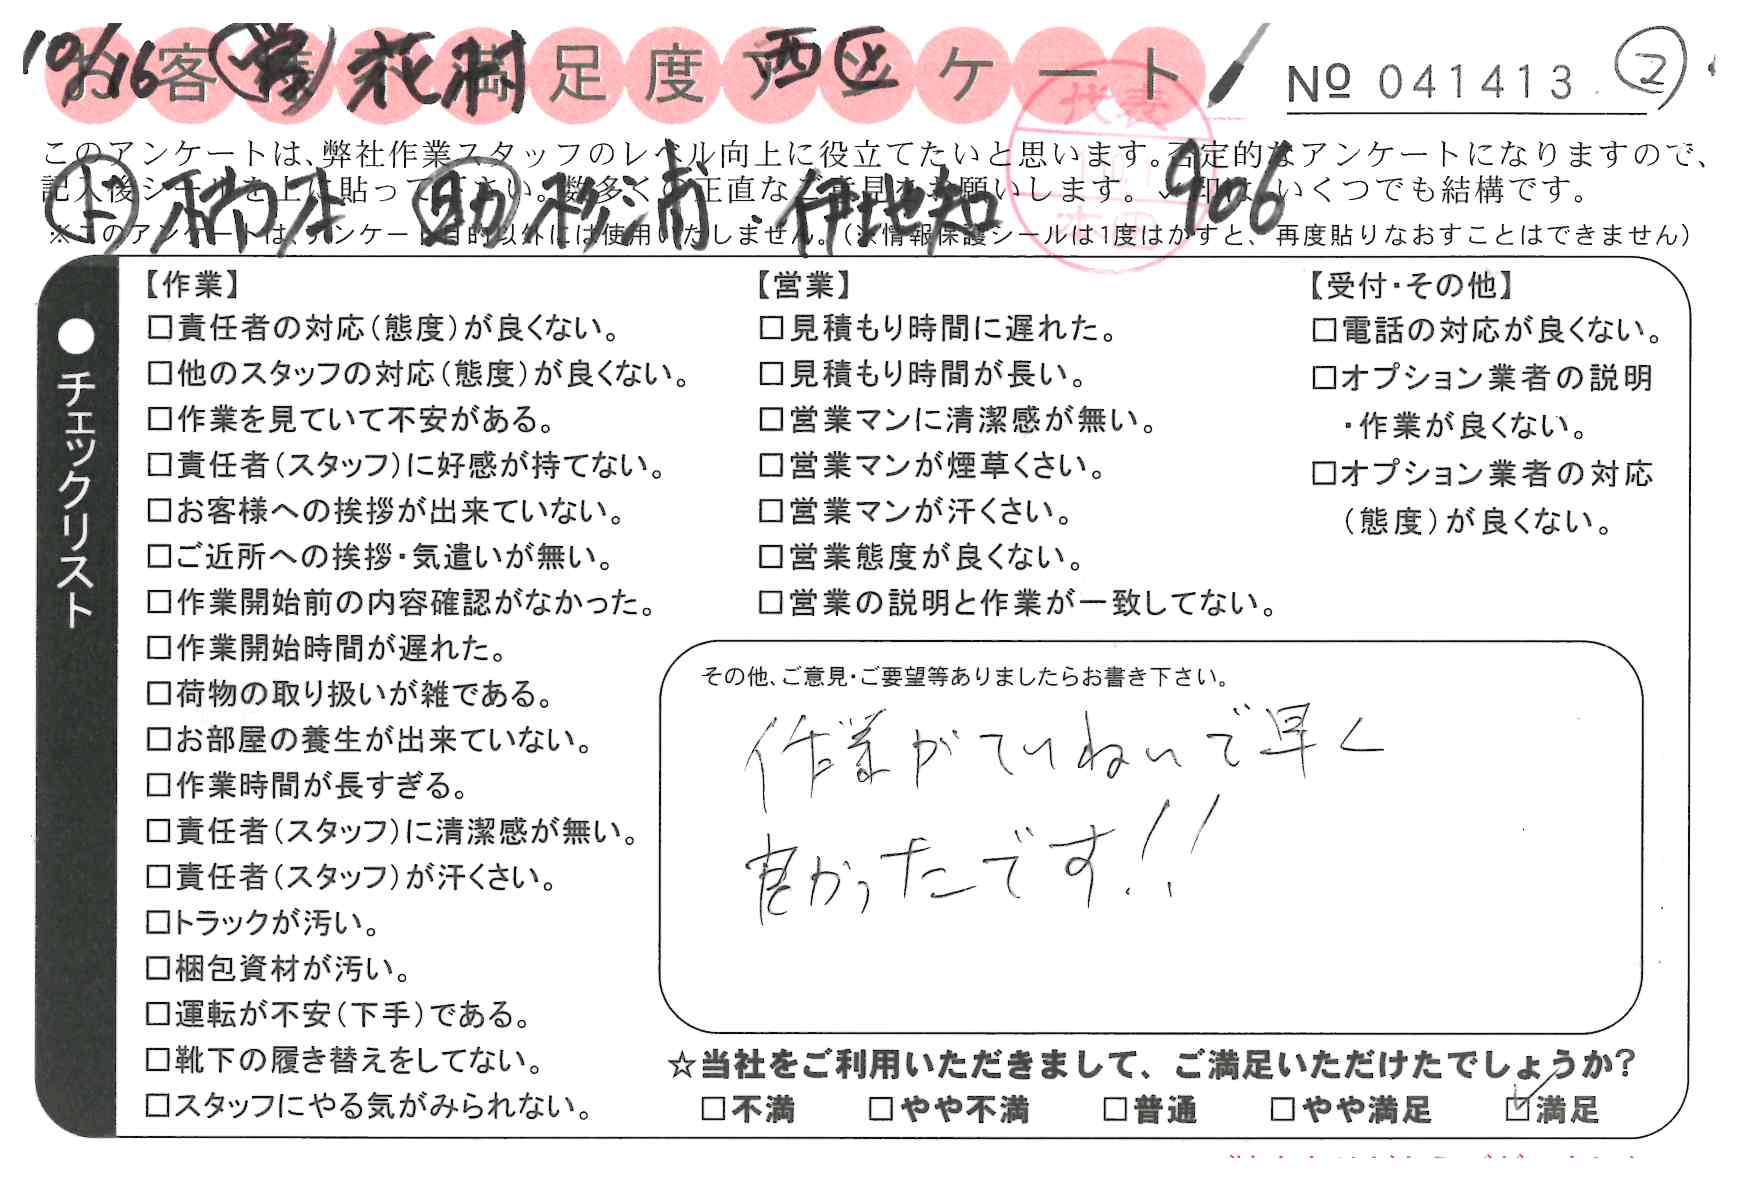 お客様満足度アンケート
10/16 営 花村 西区
No 041413 ②
このアンケートは、弊社作業スタッフのレベル向上に役立てたいと思います。否定的なアンケートになりますので、
記入後シールを上に貼って下さい。数多くの正直なご意見をお願いします。✓印は、いくつでも結構です。
助 松浦・伊地知 906
※このアンケートは、アンケート目的以外には使用いたしません。(※情報保護シールは1度はがすと、再度貼りなおすことはできません)
代表
●チェックリスト
【作業】
□責任者の対応(態度)が良くない。
□他のスタッフの対応(態度)が良くない。
□作業を見ていて不安がある。
□責任者(スタッフ)に好感が持てない。
□お客様への挨拶が出来ていない。
□ご近所への挨拶・気遣いが無い。
□作業開始前の内容確認がなかった。
□作業開始時間が遅れた。
□荷物の取り扱いが雑である。
□お部屋の養生が出来ていない。
□作業時間が長すぎる。
□責任者(スタッフ)に清潔感が無い。
□責任者(スタッフ)が汗くさい。
□トラックが汚い。
□梱包資材が汚い。
□運転が不安(下手)である。
□靴下の履き替えをしてない。
□スタッフにやる気がみられない。
【営業】
□見積もり時間に遅れた。
□見積もり時間が長い。
□営業マンに清潔感が無い。
□営業マンが煙草くさい。
□営業マンが汗くさい。
□営業態度が良くない。
□営業の説明と作業が一致してない。
【受付・その他】
□電話の対応が良くない。
□オプション業者の説明
・作業が良くない。
□オプション業者の対応
(態度)が良くない。
その他、ご意見・ご要望等ありましたらお書き下さい。
作業がていねいで早く
良かったです!!
☆当社をご利用いただきまして、ご満足いただけたでしょうか?
□不満 □やや不満 □普通 □やや満足 ☑満足